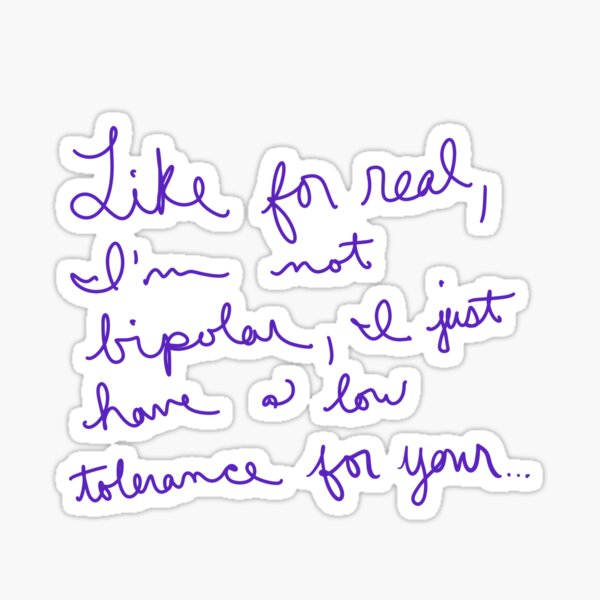 Like for real,
I'm not
bipolar, I just
have a low
tolerance for your...